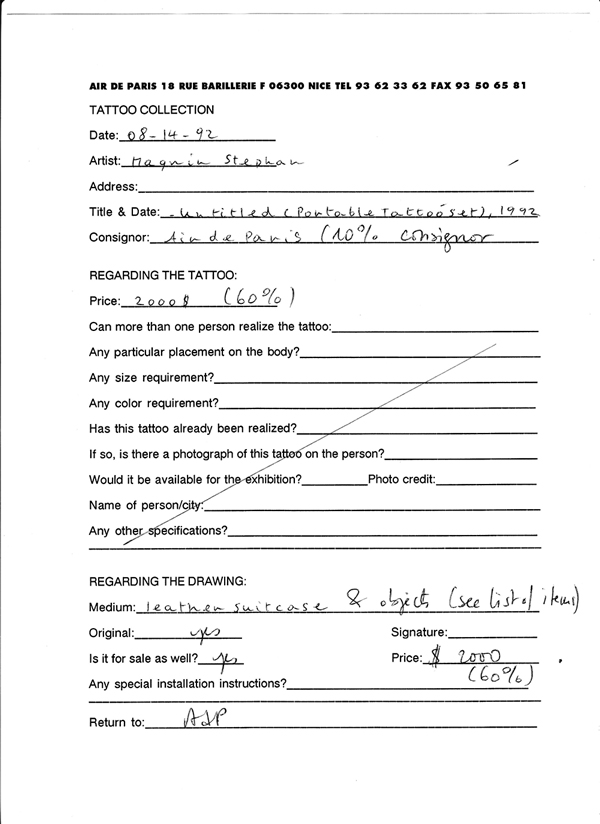 AIR DE PARIS 18 RUE BARILLERIE F 06300 NICE TEL 93 62 33 62 FAX 93 50 65 81
TATTOO COLLECTION
Date: 08-14-92
Artist: Magnin Stephan
Address:
Title & Date: - Untitled (Portable Tattoo Set), 1992
Consignor: Air de Paris (10% consignor
REGARDING THE TATTOO:
Price: 2000$ (60%)
Can more than one person realize the tattoo:
Any particular placement on the body?
Any size requirement?
Any color requirement?
Has this tattoo already been realized?
If so, is there a photograph of this tattoo on the person?
Would it be available for the exhibition? Photo credit:
Name of person/city:
Any other specifications?
REGARDING THE DRAWING:
Medium: leather suitcase & objects (see list of items)
Original: yes Signature:
Is it for sale as well? yes Price: $ 2000
Any special installation instructions? (60%)
Return to: AdP